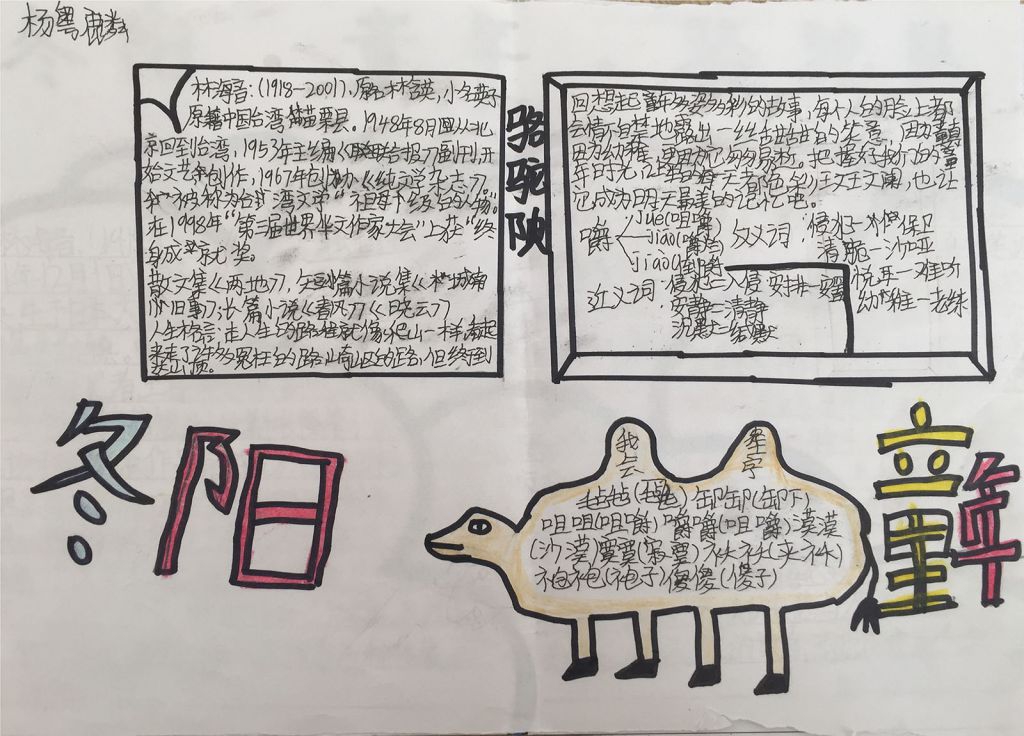 杨粤麟
林海音:(1918-2001),原名林含英,小名英子
原籍中国台湾省苗栗县。1948年8月从北
京回到台湾,1953年主编《联合报》副刊,开
始文艺创作,1967年创办《纯文学杂志》。
被称为台湾文学
在1998年“第三届世界华文作家大会”上获“终
身成就奖。
散文集《两地》,短篇小说集《城南
旧事》;长篇小说《春风》《晓云》
人生格言:走人生的路程就像爬山一样,看起
来走了许多冤枉的路,崎岖的路,但终到
达山顶。
骆驼队
回想起童年多姿多彩的故事,每个人的脸上都
会情不自禁地露出一丝甜甜的笑意,因为童真
因为幼稚,
年时光,让童年的每一天都色彩斑斓,也让
它成为明天最美的记忆吧。
嚼 jué(咀嚼)
jiáo(嚼
jiào(倒嚼
反义词:侵犯—保卫
清脆—沙哑
悦耳—难听
幼稚—老练
近义词:侵犯=入侵 安排=安置
安静=清静
沉默=缄默
冬阳
童年
我会写字
毡毡(毛毡) 卸卸(卸下)
咀咀(咀嚼)嚼嚼(咀嚼)漠漠
(沙漠)寞寞(寂寞)袄袄(夹袄)
袍袍(袍子)傻傻(傻子)